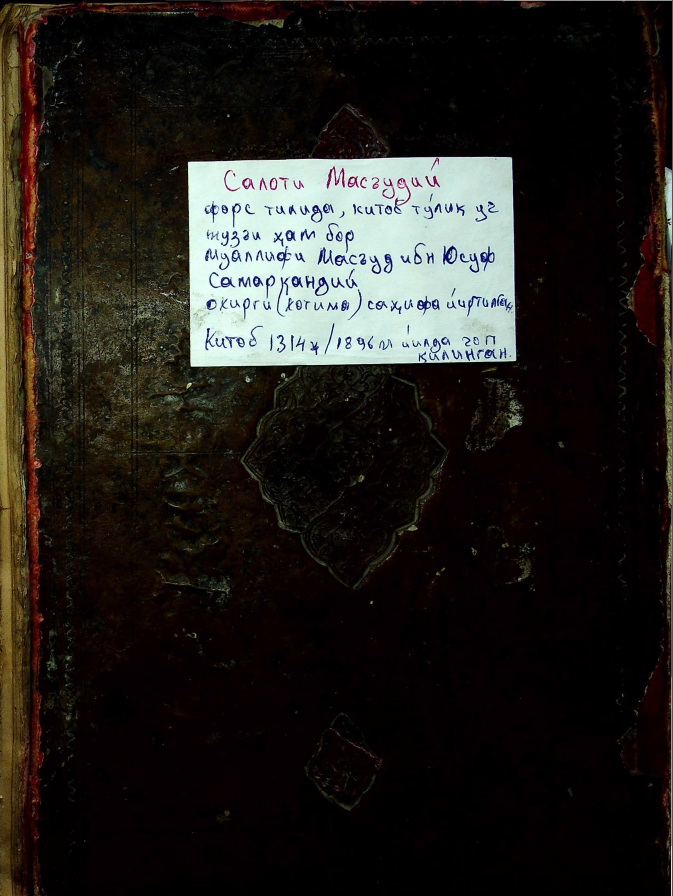 Салоти Масъудий
форс тилида, китоб тўлиқ уч
жузъи ҳам бор
Муаллифи Масъуд ибн Юсуф
Самарқандий
охирги (хотима) саҳифа йиртилган.
Китоб 1314ҳ/1896м йилда чоп
қилинган.